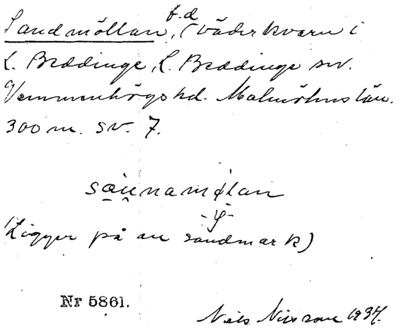 Sandmöllan, f.d. (väderkvarn i
L. Beddinge, L. Beddinge sn.
Vemmenhögs hd. Malmöhus län.
300 m. sv. 7.
saunamölan
-ψ-
(Ligger på en sandmark)
Nr 5861.
Nils Nilsson 1934.